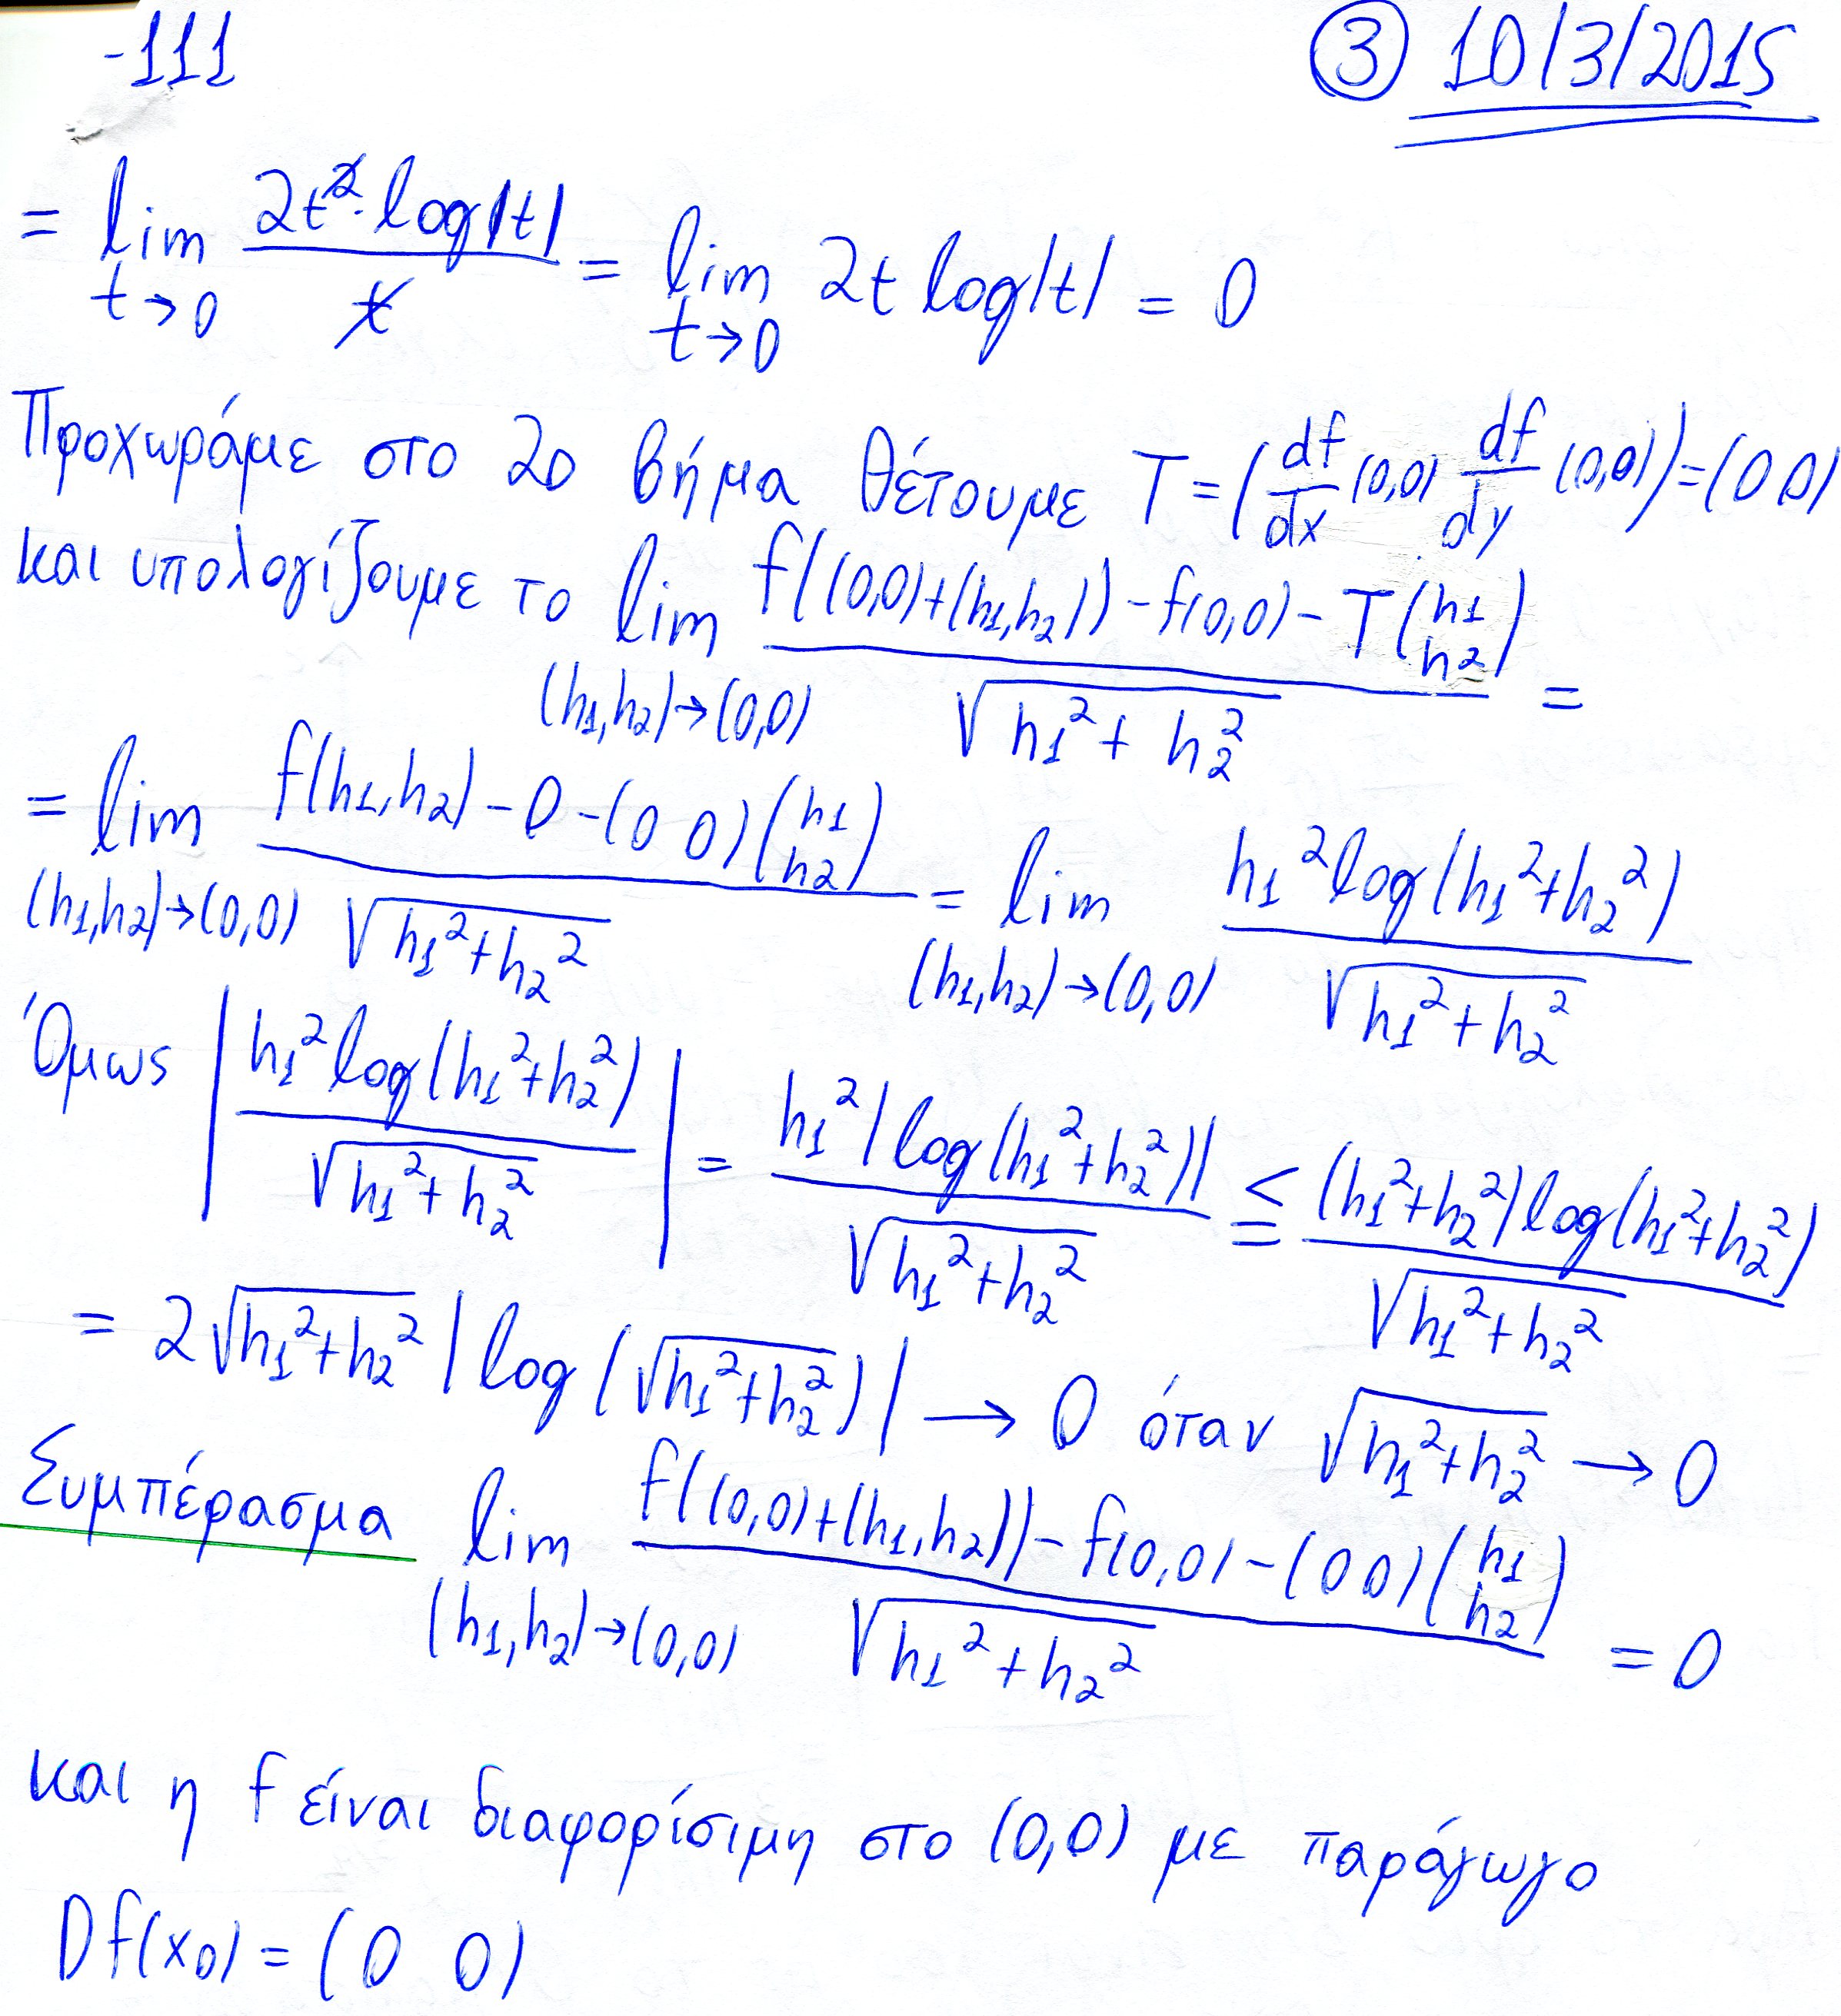 -111 ③ 10/3/2015
= lim_{t→0} (2t² · log|t|)/t = lim_{t→0} 2t log|t| = 0
Προχωράμε στο 2ο βήμα θέτουμε T = (df/dx (0,0) df/dy (0,0)) = (0 0)
και υπολογίζουμε το lim_{(h₁,h₂)→(0,0)} (f((0,0)+(h₁,h₂)) - f(0,0) - T(h₁ h₂))/√(h₁²+h₂²) =
= lim_{(h₁,h₂)→(0,0)} (f(h₁,h₂) - 0 - (0 0)(h₁ h₂))/√(h₁²+h₂²) = lim_{(h₁,h₂)→(0,0)} (h₁² log(h₁²+h₂²))/√(h₁²+h₂²)
Όμως |(h₁² log(h₁²+h₂²))/√(h₁²+h₂²)| = (h₁² |log(h₁²+h₂²)|)/√(h₁²+h₂²) ≤ ((h₁²+h₂²) log(h₁²+h₂²))/√(h₁²+h₂²)
= 2√(h₁²+h₂²) |log(√(h₁²+h₂²))| → 0 όταν √(h₁²+h₂²) → 0
Συμπέρασμα lim_{(h₁,h₂)→(0,0)} (f((0,0)+(h₁,h₂)) - f(0,0) - (0 0)(h₁ h₂))/√(h₁²+h₂²) = 0
και η f είναι διαφορίσιμη στο (0,0) με παράγωγο
Df(x₀) = (0 0)